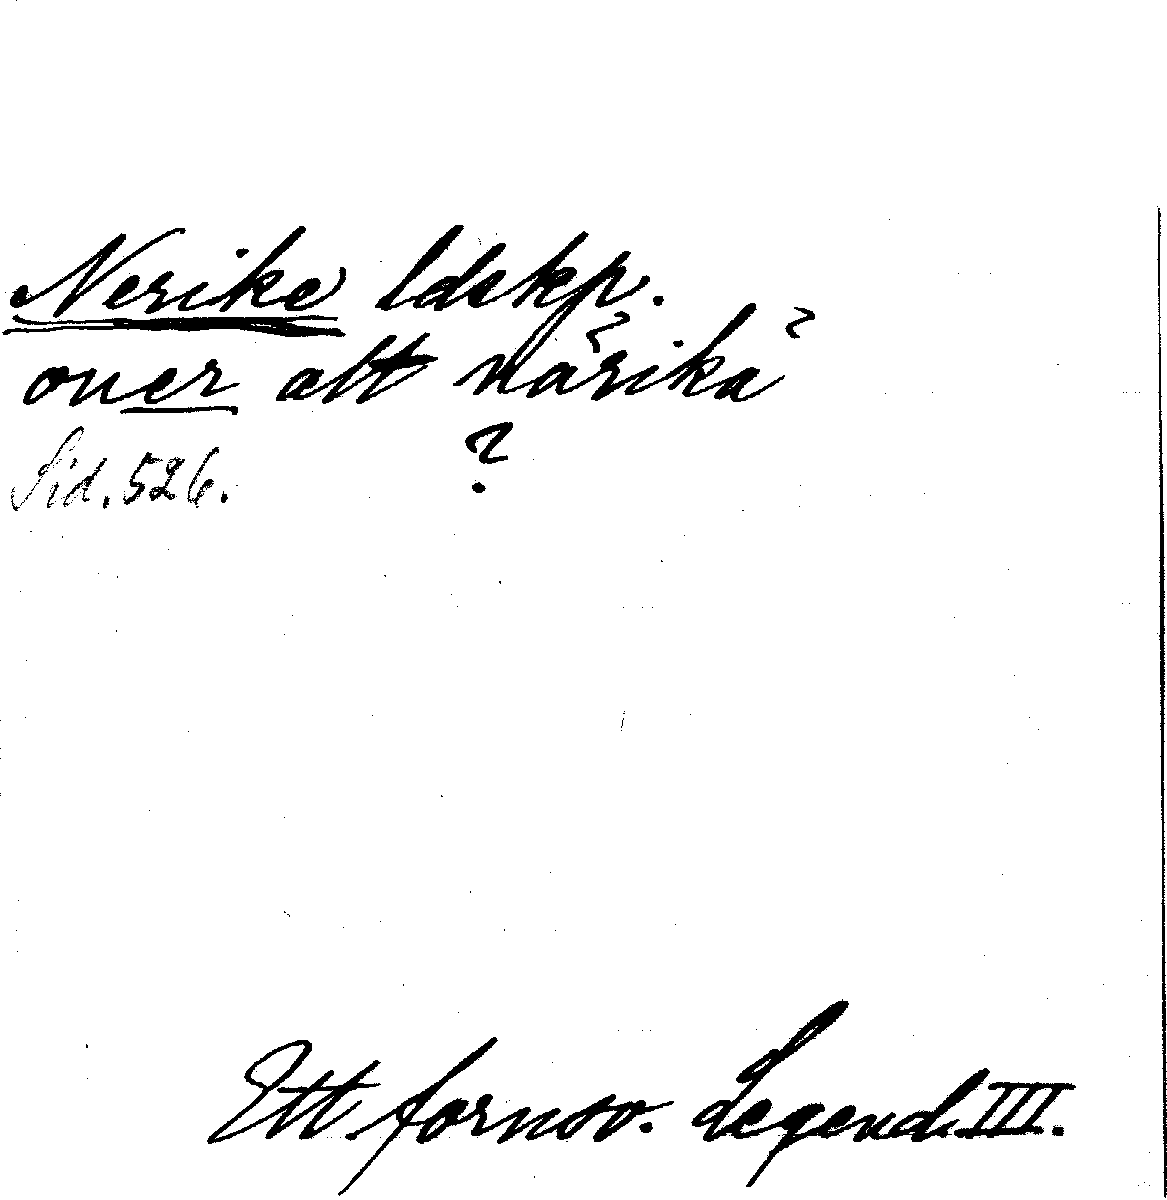 Nerike ldskp.
oner alt närika
?
Sid. 526.
Ett fornsv. Legend. III.